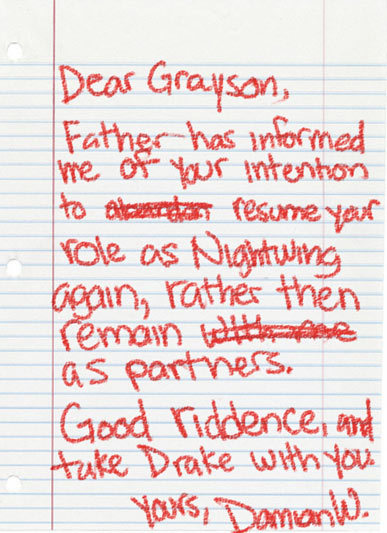 Dear Grayson,
Father has informed
me of your intention
to abandon resume your
role as Nightwing
again, rather then
remain with me
as partners.
Good riddence, and
take Drake with you.
Yours, Damian W.